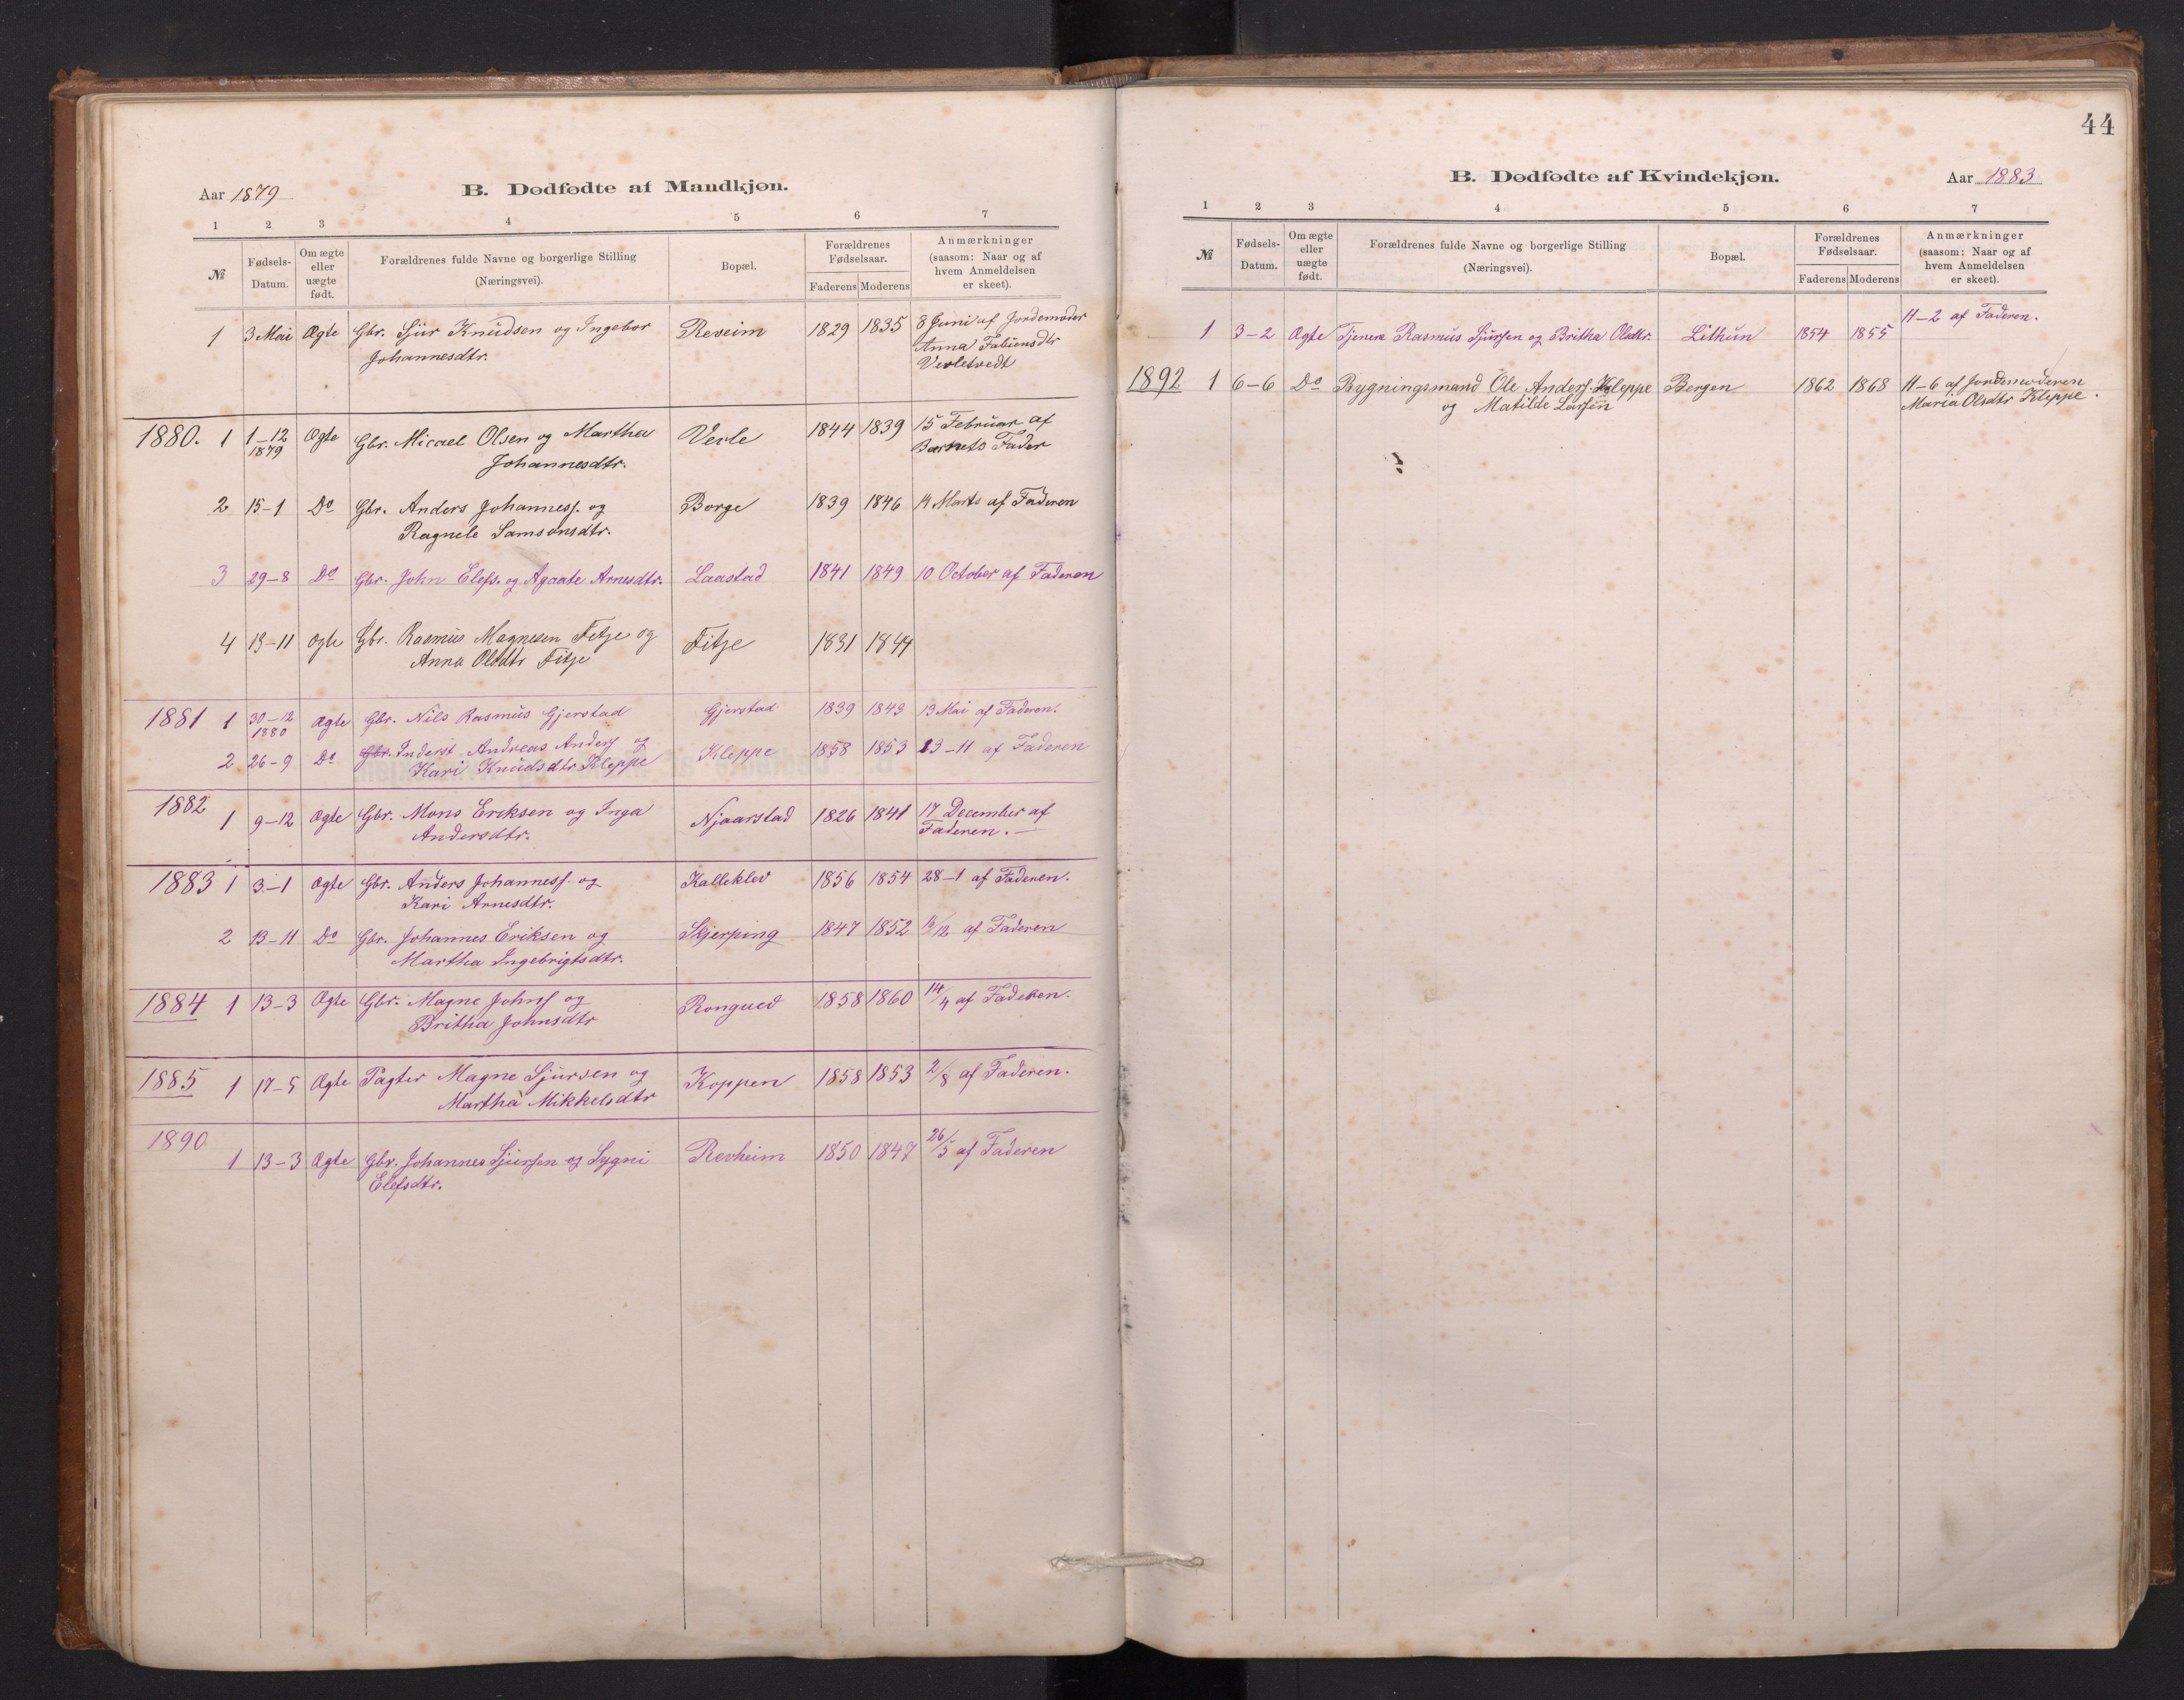 Aar 1879
B. Dødfødte af Mandkjøn.
1 2 3 4 5 6 7
№
Fødsels-Datum.
Om ægte eller uægte født.
Forældrenes fulde Navne og borgerlige Stilling
(Næringsvei).
Bopæl.
Forældrenes Fødselsaar.
Faderens Moderens
Anmærkninger
(saasom: Naar og af
hvem Anmeldelsen
er skeet).
1 3 Mai Ægte Gbr. Sjur Knudsen og Ingebor Reveim 1829 1835 8 Juni af Jordemoder
Johannesdtr. Anna Fabiensdtr
1880. 1 1–12 Ægte Gbr. Micael Olsen og Martha Verle 1844 1839 15 Februar af
1879 Johannesdtr. Barnets Fader
2 15–1 Do Gbr. Anders Johannesf. og Borge 1839 1846 14 Marts af Faderen
Ragnele Samsonsdtr.
3 29–8 Do Gbr. John Elefs. og Agaate Arnesdtr. Laastad 1841 1849 10 October af Faderen
4 13–11 Ægte Gbr. Rasmus Magnesen Fitje og Fitje 1831 1844
Anna Olsdtr Fitje
1881 1 30–12 Ægte Gbr. Nils Rasmus Gjerstad Gjerstad 1839 1843 13 Mai af Faderen.
1880
2 26–9 Do Gbr. Inderst Andreas Andersf og Kleppe 1858 1853 23–11 af Faderen
Kari Knudsdtr Kleppe
1882 1 9–12 Ægte Gbr. Mons Eriksen og Inga Njaarstad 1826 1841 17 December af
Andersdtr. Faderen. —
1883 1 3–1 Ægte Gbr. Anders Johannesf. og Kalleklev 1856 1854 28–1 af Faderen.
Kari Arnesdtr.
2 13–11 Do Gbr. Johannes Eriksen og Skjerping 1847 1852 13/12 af Faderen
Martha Ingebrigtsdtr.
1884 1 13–3 Ægte Gbr. Magne Johnsf og Rongved 1858 1860 14/4 af Faderen.
Britha Johnsdtr
1885 1 17–5 Ægte Pagter Magne Sjursen og Koppen 1858 1853 2/8 af Faderen.
Martha Mikkelsdtr
1890
1 13–3 Ægte Gbr. Johannes Sjursen og Sygni Revheim 1850 1847 26/5 af Faderen
Elefsdtr.
44
B. Dødfødte af Kvindekjøn.
Aar 1883
1 2 3 4 5 6 7
№
Fødsels-Datum.
Om ægte eller uægte født.
Forældrenes fulde Navne og borgerlige Stilling
(Næringsvei).
Bopæl.
Forældrenes Fødselsaar.
Faderens Moderens
Anmærkninger
(saasom: Naar og af
hvem Anmeldelsen
er skeet).
1 3–2 Ægte Tjener Rasmus Sjursen og Britha Olsdtr. Lithun 1854 1855 11–2 af Faderen.
1892 1 6–6 Do Bygningsmand Ole Andersf. Kleppe Bergen 1862 1868 11–6 af Jordemoderen
og Matilde Larsen Maria Olsdtr Kleppe.